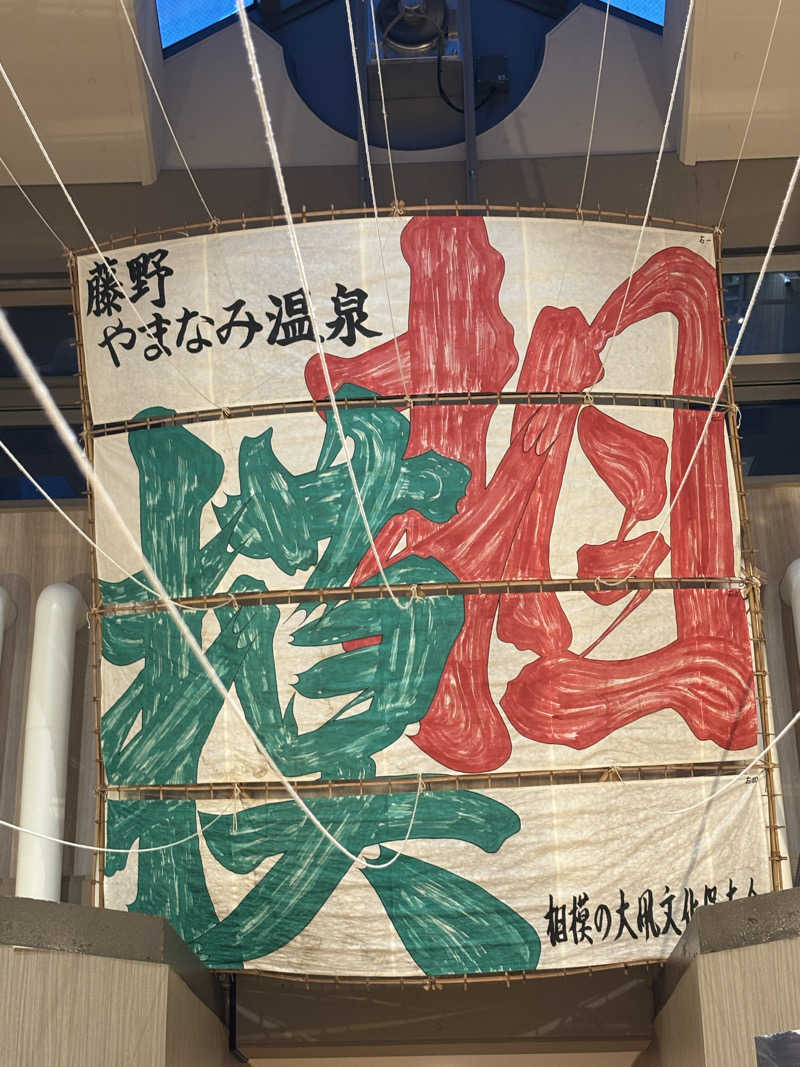 藤野
やまなみ温泉
相模
相模の大凧文化保存会
右一